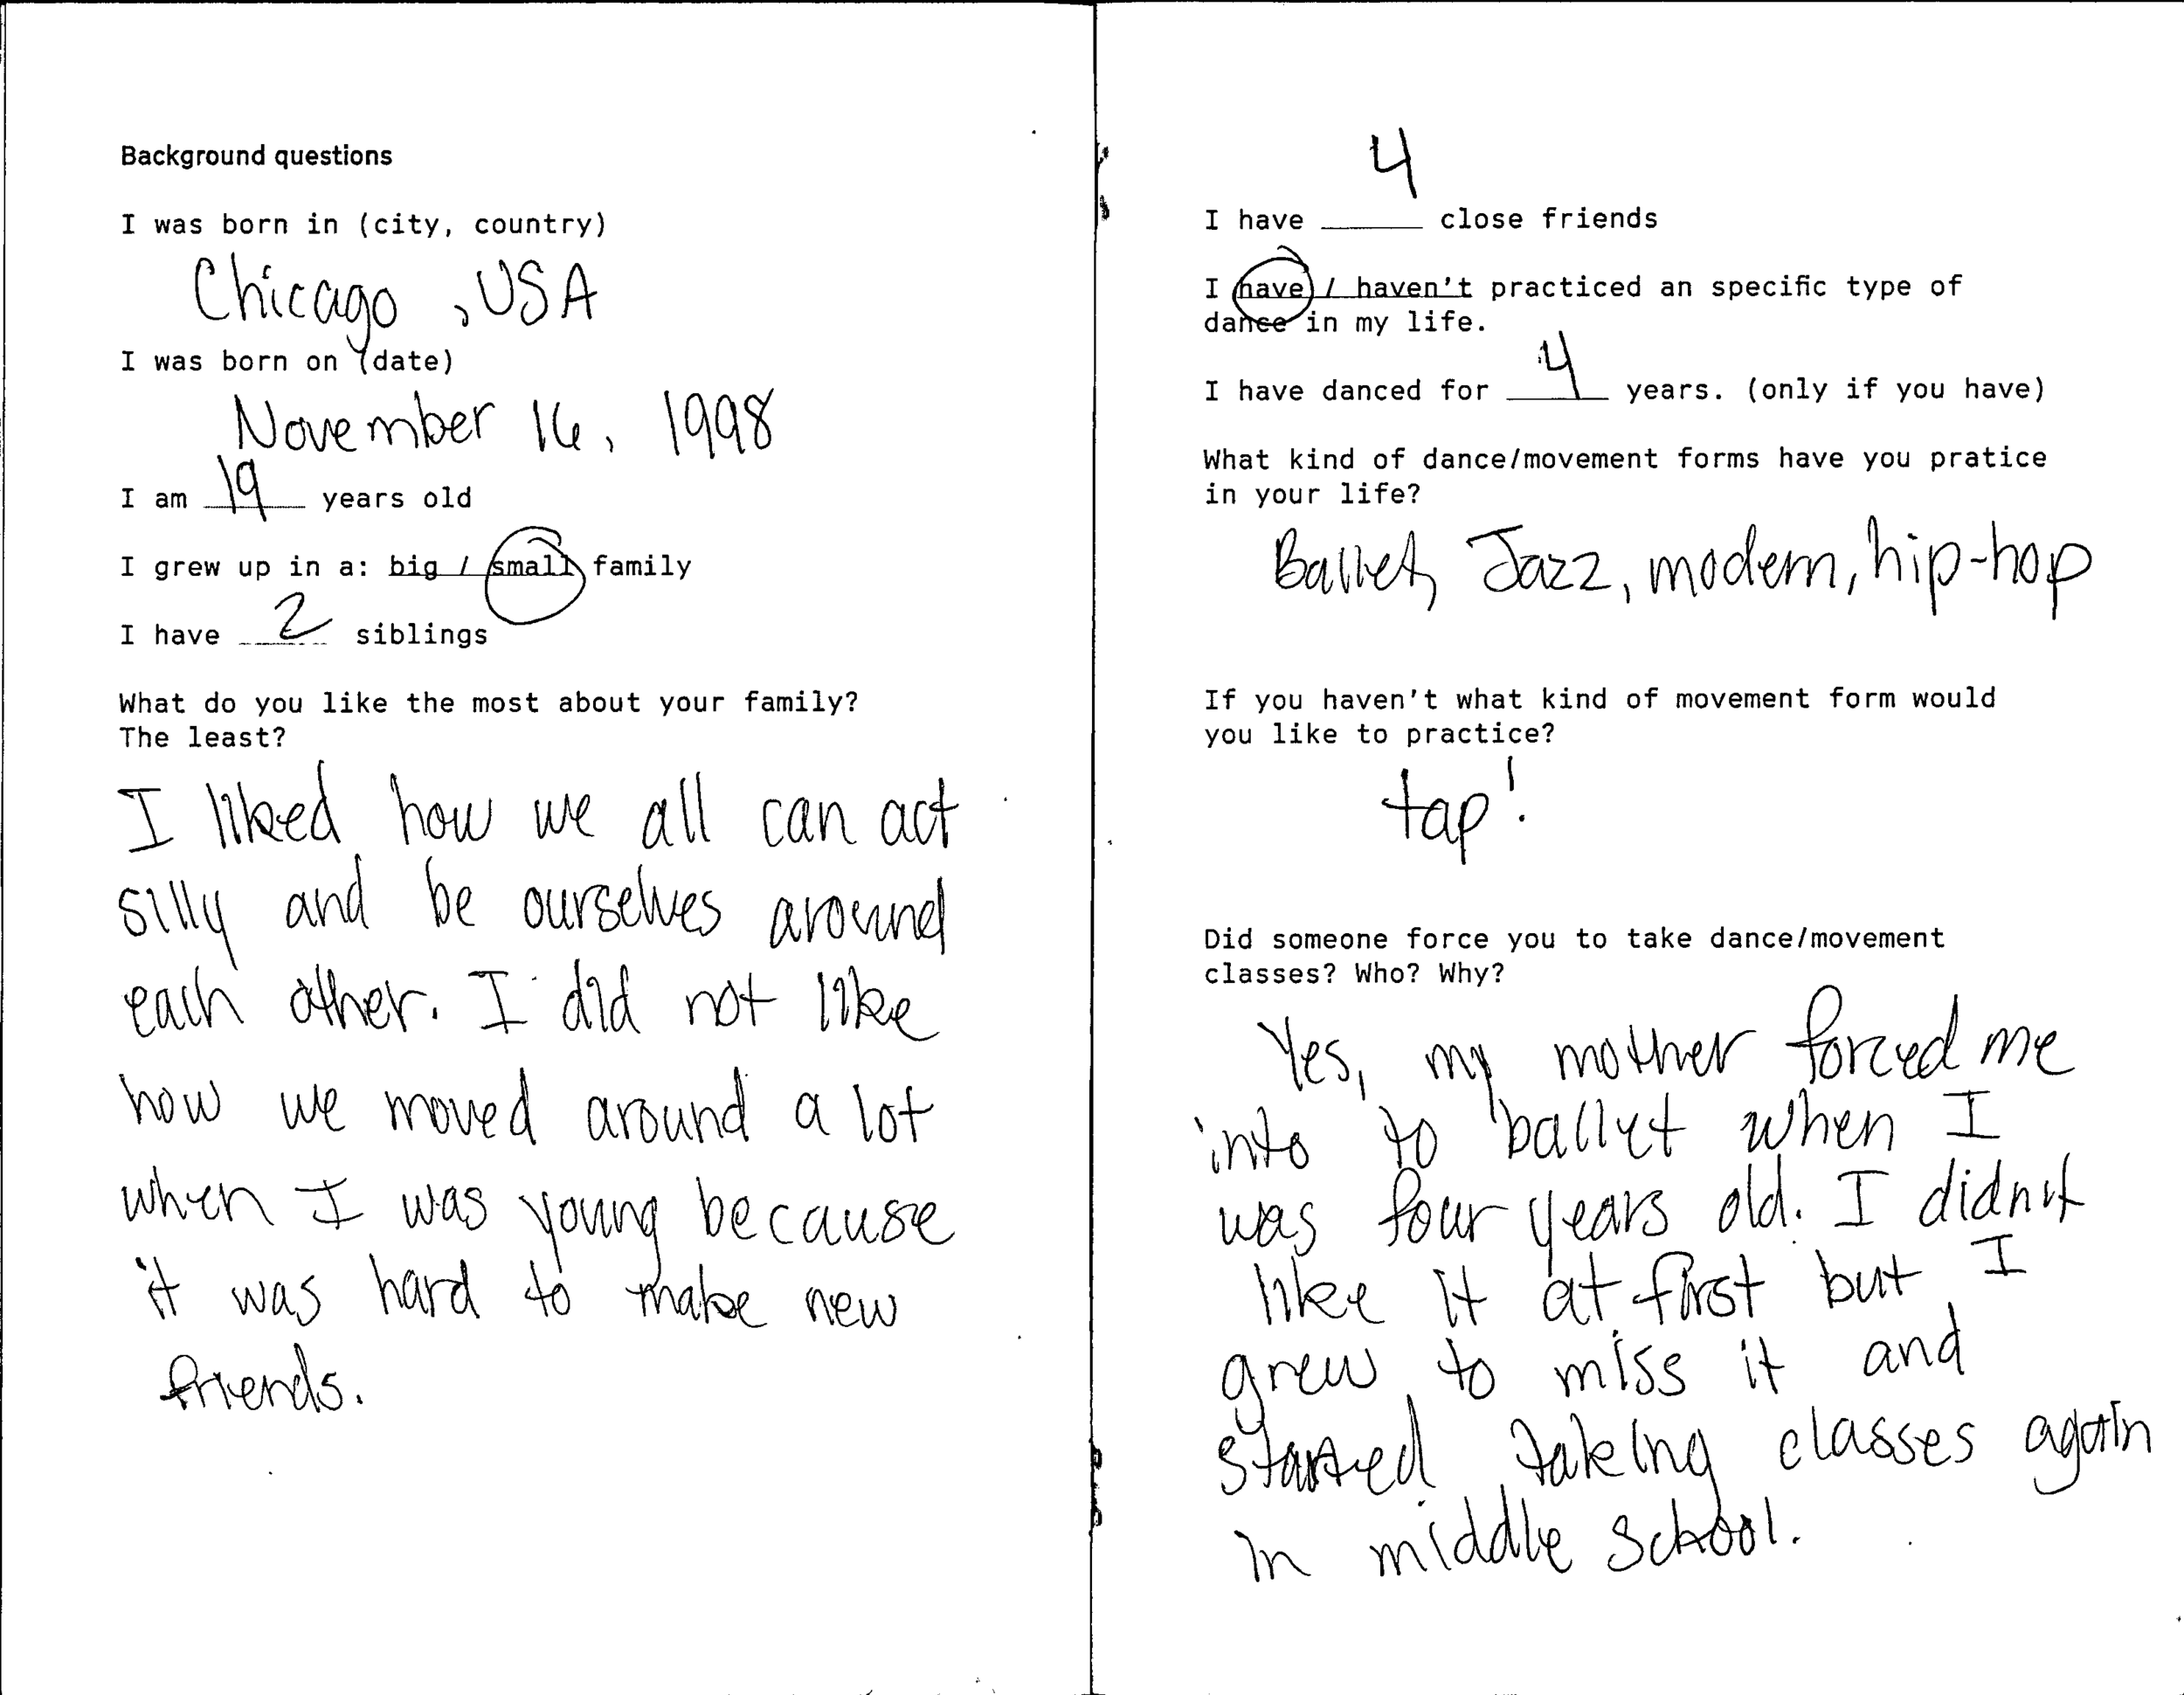 Background questions
I was born in (city, country)
Chicago, USA
I was born on (date)
November 16, 1998
I am 19 years old
I grew up in a: big / small family
I have 2 siblings
What do you like the most about your family?
The least?
I liked how we all can act
silly and be ourselves around
each other. I did not like
how we moved around a lot
when I was young because
it was hard to make new
friends.
4
I have ____ close friends
I have / haven't practiced an specific type of
dance in my life.
I have danced for 4 years. (only if you have)
What kind of dance/movement forms have you pratice
in your life?
Ballet, Jazz, modern, hip-hop
If you haven't what kind of movement form would
you like to practice?
tap!
Did someone force you to take dance/movement
classes? Who? Why?
Yes, my mother forced me
into to ballet when I
was four years old. I didn't
like it at first but I
grew to miss it and
started taking classes again
in middle school.